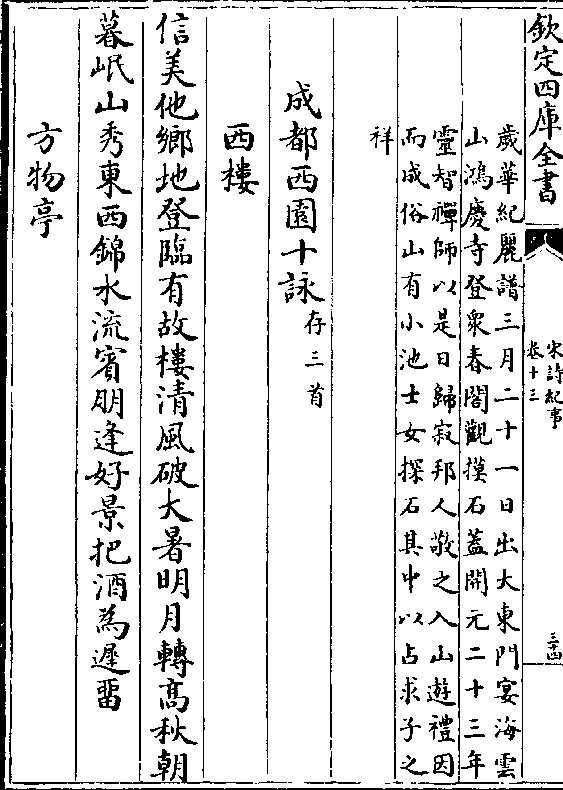 欽定四庫全書
宋詩紀事
卷十三
三十四
歲華紀麗譜三月二十一日出大東門宴海雲
山鴻慶寺登衆春閣觀摸石蓋開元二十三年
靈智禪師以是日歸寂邦人敬之入山遊禮因
而成俗山有小池士女探石其中以占求子之
祥
成都西園十詠存三首
西樓
信美他鄉地登臨有故樓清風破大暑明月轉高秋朝
暮岷山秀東西錦水流賓朋逢好景把酒為遲留
方物亭